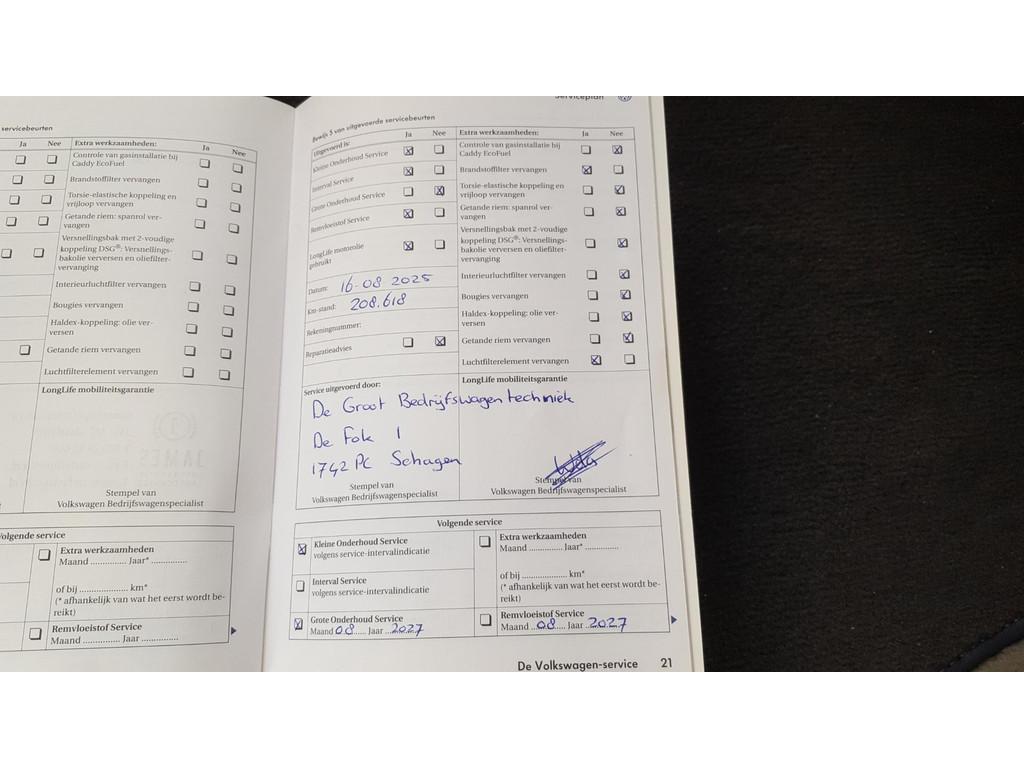 servicebeurten
Ja Nee Extra werkzaamheden: Ja Nee
Controle van gasinstallatie bij
Caddy EcoFuel
Brandstoffilter vervangen
Torsie-elastische koppeling en
vrijloop vervangen
Getande riem: spanrol ver-
vangen
Versnellingsbak met 2-voudige
koppeling DSG®: Versnellings-
bakolie verversen en oliefilter-
vervanging
Interieurluchtfilter vervangen
Bougies vervangen
Haldex-koppeling: olie ver-
versen
Getande riem vervangen
Luchtfilterelement vervangen
LongLife mobiliteitsgarantie
Stempel van
Volkswagen Bedrijfswagenspecialist
Volgende service
Extra werkzaamheden
Maand .............. Jaar* ..............
of bij .................... km*
(* afhankelijk van wat het eerst wordt be-
reikt)
Remvloeistof Service
Maand .............. Jaar ..............
Serviceplan
Bewijs 5 van uitgevoerde servicebeurten
Uitgevoerd is: Ja Nee
Kleine Onderhoud Service
Interval Service
Grote Onderhoud Service
Remvloeistof Service
LongLife motorolie
gebruikt
Datum: 16-08 2025
Km-stand: 208.618
Rekeningnummer:
Reparatieadvies
Extra werkzaamheden: Ja Nee
Controle van gasinstallatie bij
Caddy EcoFuel
Brandstoffilter vervangen
Torsie-elastische koppeling en
vrijloop vervangen
Getande riem: spanrol ver-
vangen
Versnellingsbak met 2-voudige
koppeling DSG®: Versnellings-
bakolie verversen en oliefilter-
vervanging
Interieurluchtfilter vervangen
Bougies vervangen
Haldex-koppeling: olie ver-
versen
Getande riem vervangen
Luchtfilterelement vervangen
Service uitgevoerd door:
De Groot Bedrijfswagentechniek
De Fok 1
1742 PC Schagen
Stempel van
Volkswagen Bedrijfswagenspecialist
LongLife mobiliteitsgarantie
Stempel van
Volkswagen Bedrijfswagenspecialist
Volgende service
Kleine Onderhoud Service
volgens service-intervalindicatie
Interval Service
volgens service-intervalindicatie
Grote Onderhoud Service
Maand 08 Jaar 2027
Extra werkzaamheden
Maand .............. Jaar* ..............
of bij .................... km*
(* afhankelijk van wat het eerst wordt be-
reikt)
Remvloeistof Service
Maand 08 Jaar 2027
De Volkswagen-service 21